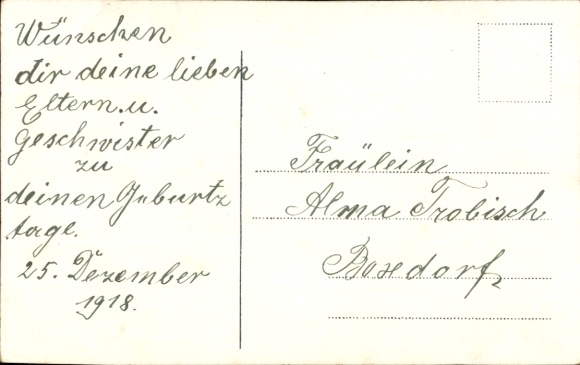 Wünschen
dir deine lieben
Eltern. u.
Geschwister
zu
deinen Geburtz
tage.
25. Dezember
1918.
Fräulein
Alma Trobisch
Boxdorf